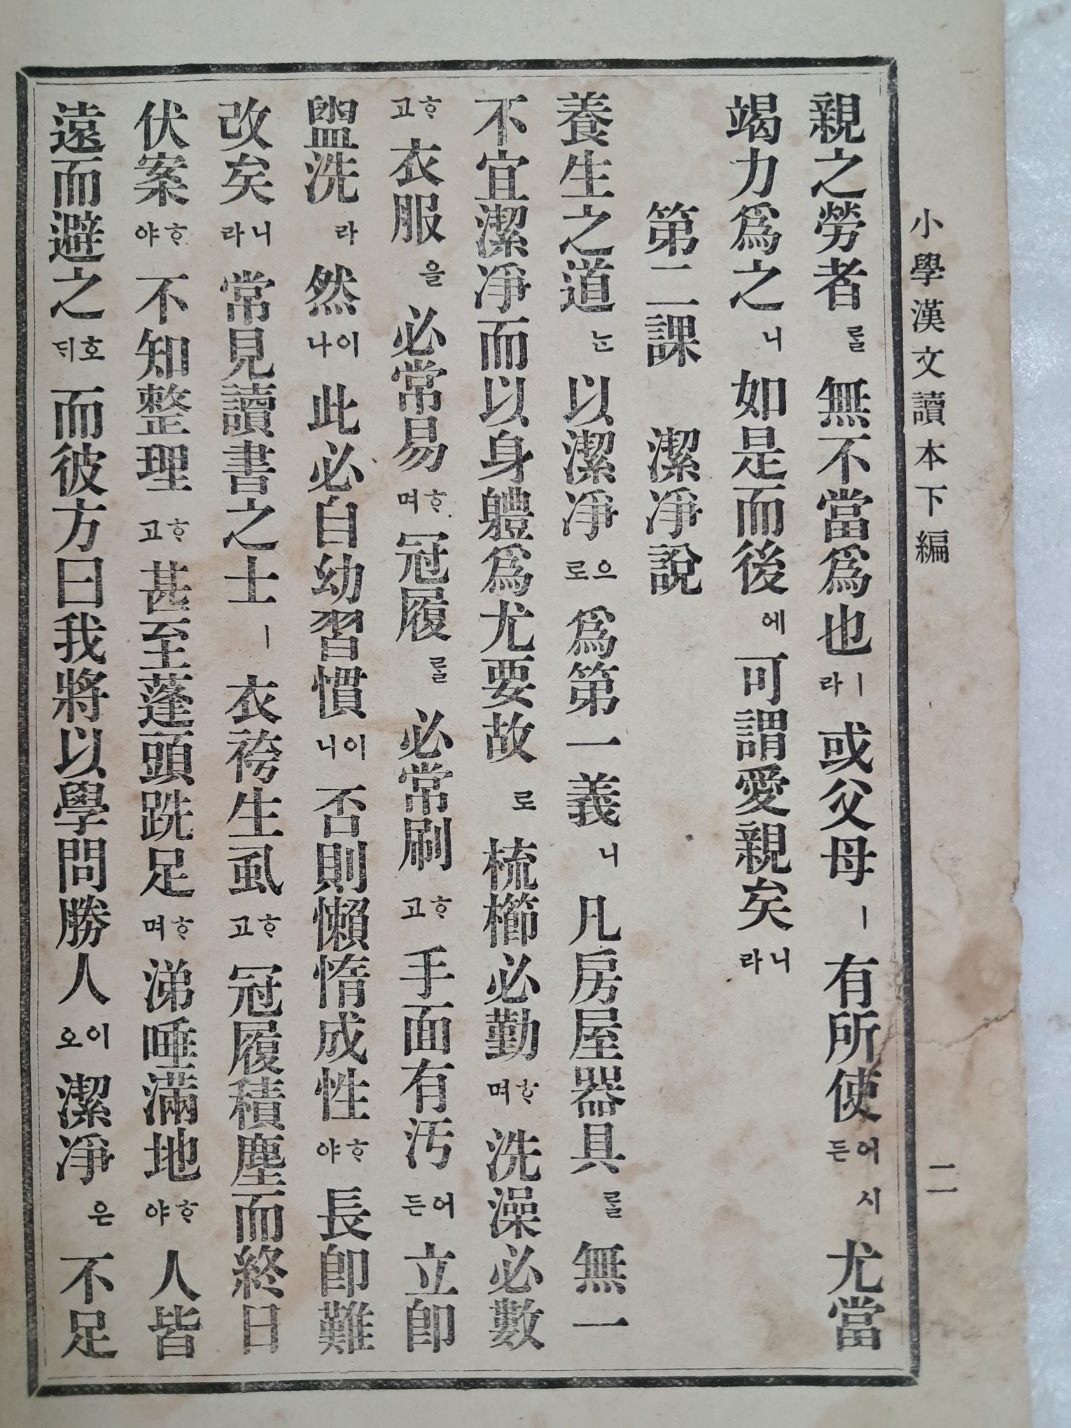 小學漢文讀本下編
二
親之勞者를 無不當爲也ㅣ라 或父母ㅣ 有所使어시든 尤當
竭力爲之니 如是而後에 可謂愛親矣니라
第二課 潔凈說
養生之道는 以潔凈으로 爲第一義니 凡房屋器具를 無一
不宜潔凈而以身軆爲尤要故로 梳櫛必勤ᄒᆞ며 洗澡必數
ᄒᆞ고 衣服을 必常易ᄒᆞ며 冠履를 必常刷ᄒᆞ고 手面有汚어든 立卽
盥洗라 然이나 此必自幼習慣이니 否則懶惰成性ᄒᆞ야 長卽難
改矣니라 常見讀書之士ㅣ 衣袴生虱ᄒᆞ고 冠履積塵而終日
伏案ᄒᆞ야 不知整理ᄒᆞ고 甚至蓬頭跣足ᄒᆞ며 涕唾滿地ᄒᆞ야 人皆
遠而避之호ᄃᆡ 而彼方曰我將以學問勝人이오 潔凈은 不足